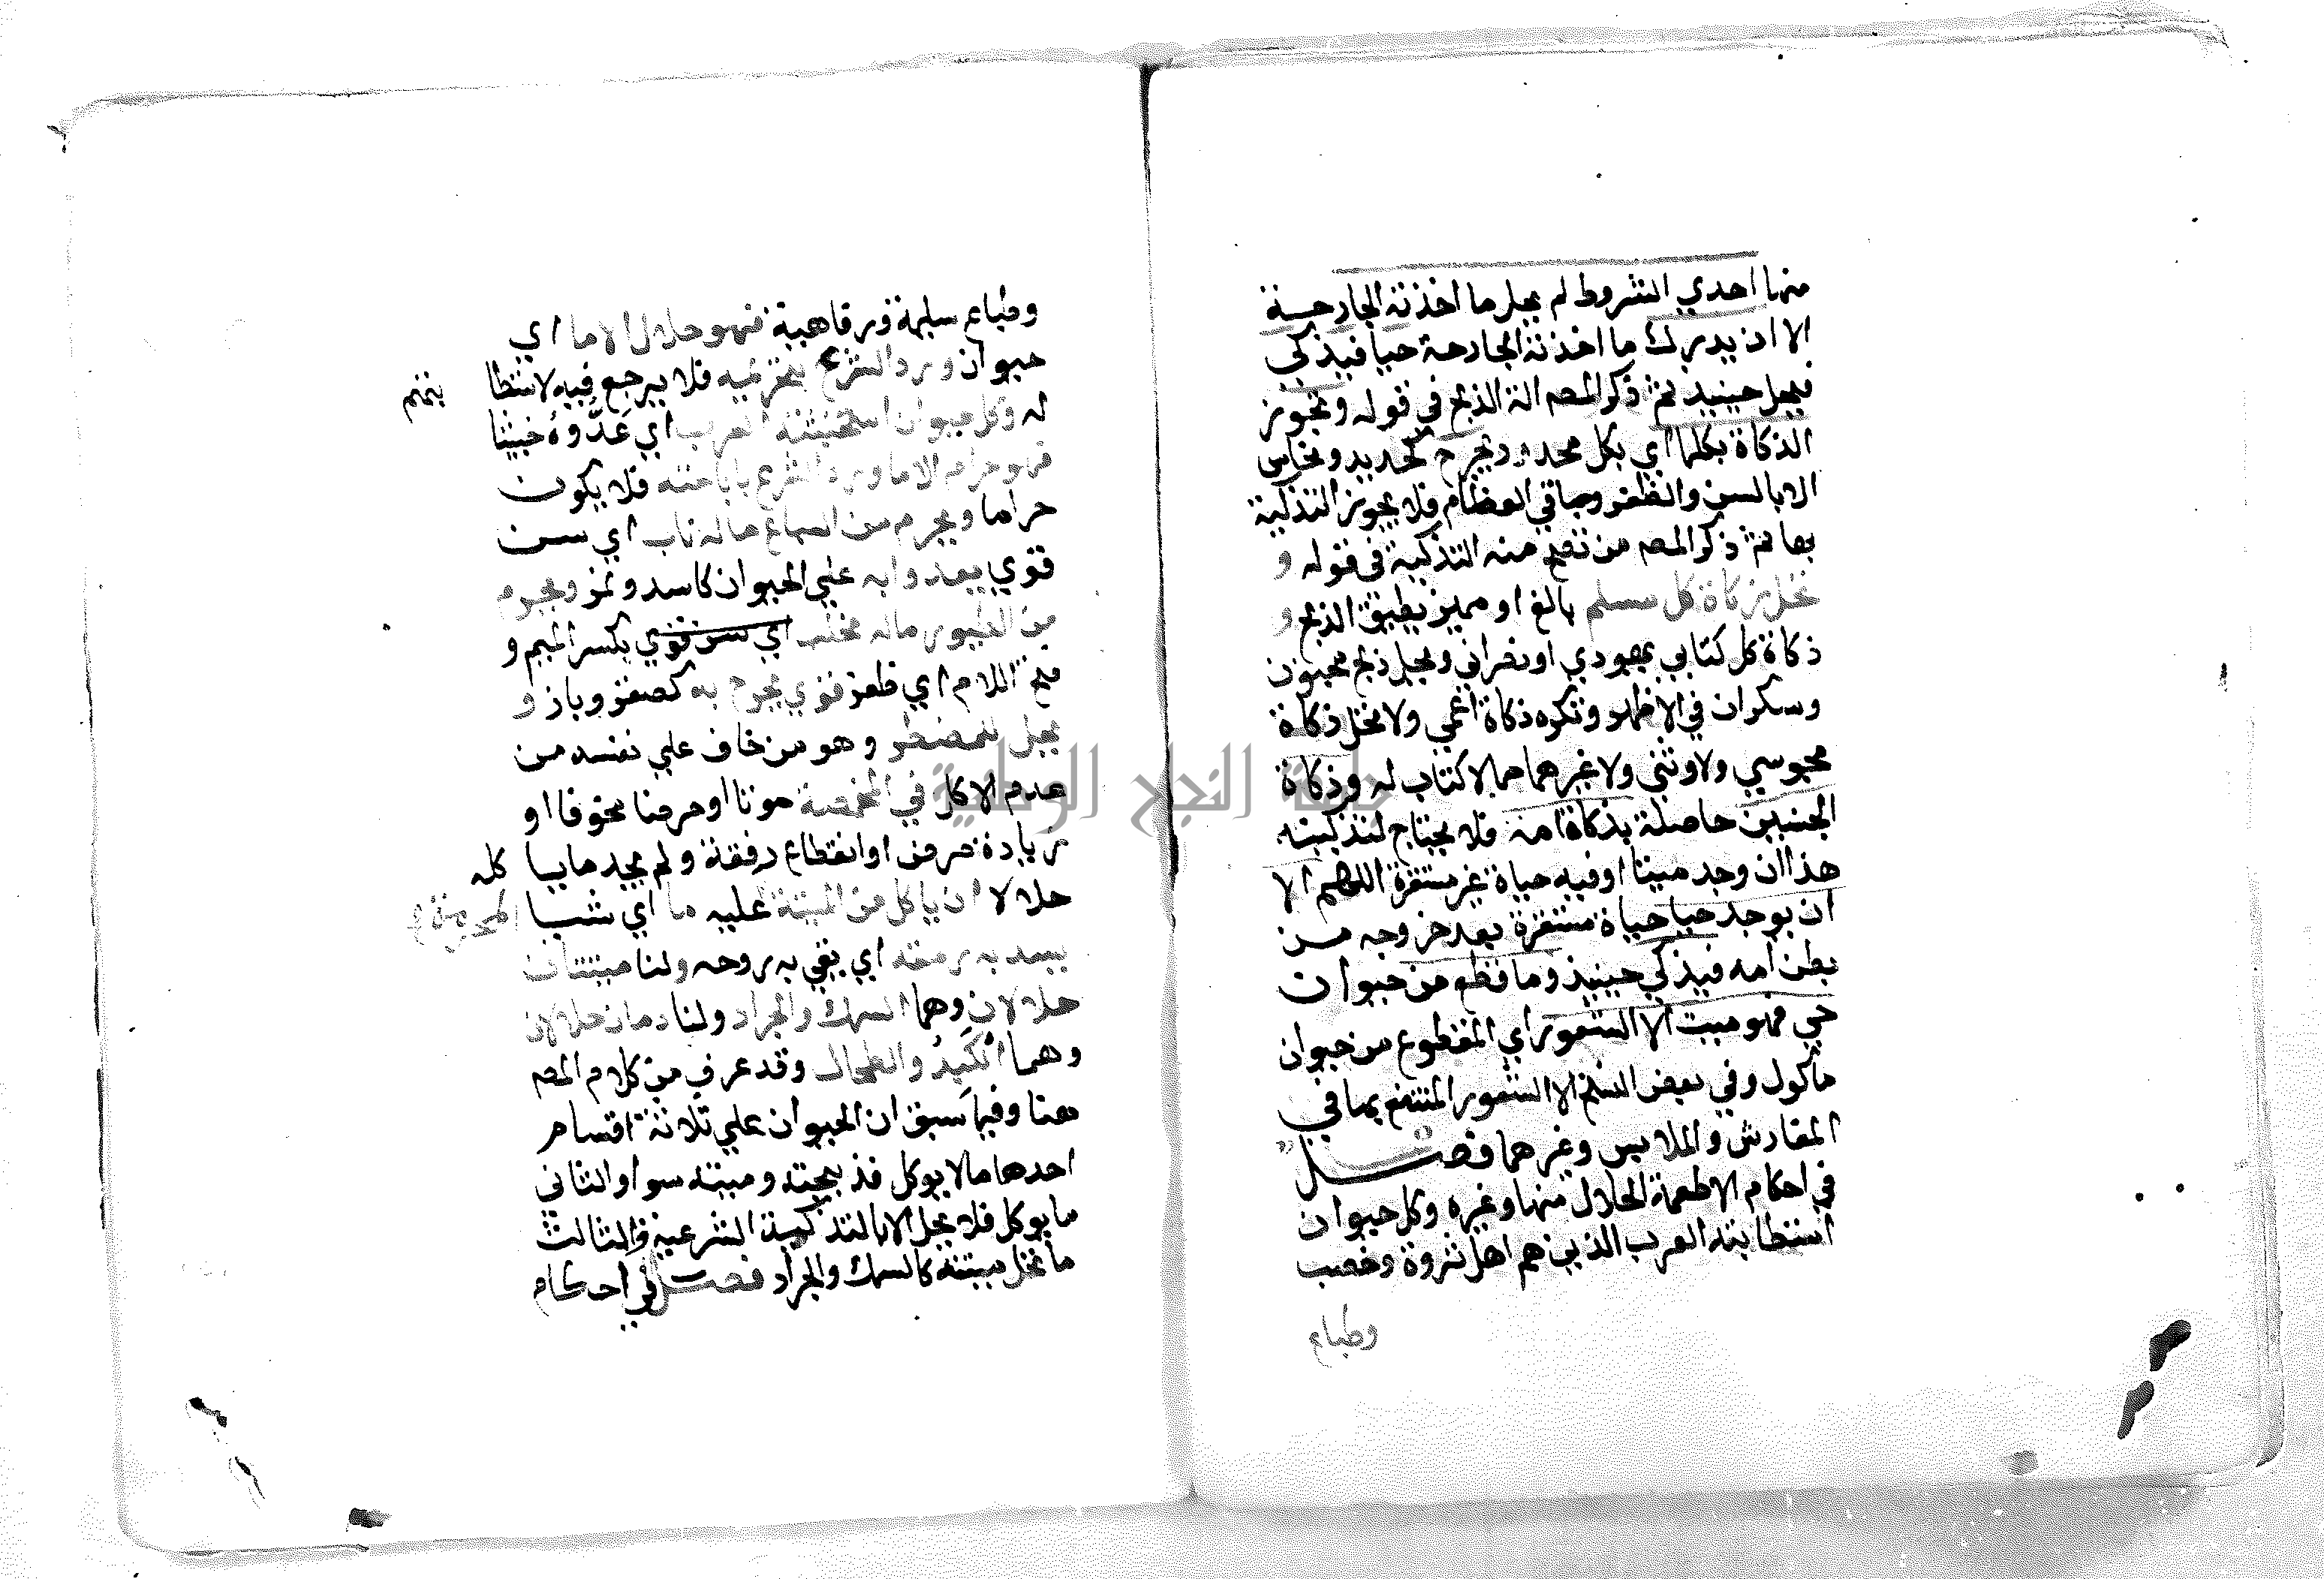 منها احدي الشروط لم يحل ما اخذته الجارحة
الا ان يدرك ما اخذته الجارحة حيا فيذكى
فيحل حينيد ثم ذكر المصـ الة الذبح في قوله وتجوز
الذكاة بكل ما اي بكل محدد يجرح كحديد ونحاس
الا بالسن والظفر وباقي العظام فلا يجوز التذكية
بها ثم ذكر المصـ من تصح منه التذكية في قوله و
تحل زكاة كل مسلم بالغ او مميز يطيق الذبح و
ذكاة كل كتابي يهودي او نصراني ويحل ذبح مجنون
وسكران في الاظهر وتكره ذكاة اعمي ولا تحل ذكاة
مجوسي ولا وثني ولا غيرهما مما لا كتاب له وذكاة
الجنين حاصلة بذكاة امه فلا يحتاج لتذكيته
هذا ان وجد ميتا او فيه حياة غير مستقرة اللهم الا
ان يوجد حيا حياة مستقرة بعد خروجه من
بطن امه فيذكي حينيذ وما قطع من حيوان
حي فهو ميت الا الشعور اي المقطوع من حيوان
ماكول وفي بعض النسخ الا الشعور المنتفع بها في
المفارش والملابس وغيرهما فصل
في احكام الاطعمة الحلال منها وغيره وكل حيوان
استطابته العرب الذين هم اهل ثروة وخصب
وطباع
وطباع سليمة ورفاهية فهو حلال الا ما اي
حيوان ورد الشرع بتحريمه فلا يرجع فيه لاستطا
بتهم
له وكل حيوان استخبثته العرب اي عَدُّوهُ خبيثا
فهو حرام الا ما ورد الشرع باباحته فلا يكون
حراما ويحرم من السباع ما له ناب اي سن
قوي يعدوا به علي الحيوان كاسد ونمر ويحرم
من الطيور ماله مخلب اي سن قوي بكسر الميم و
فتح اللام اي ظفر قوي يجرح به كصقر وباز و
يحل للمضطر وهو من خاف علي نفسه من
عدم الاكل في المخمصة موتا او مرضا مخوفا او
زيادة مرض او انقطاع رفقة ولم يجد ما ييا كله
حلالا ان ياكل من الميتة عليه ما اي شيا
المحرمة
يسد به رمقه اي بقي به روحه ولنا ميتتان
حلالان وهما السمك والجراد ولنا دمان حلالان
وهما الكَبِدُ والطحال وقد عرف من كلام المصـ
هنا وفيما سبق ان الحيوان علي ثلاثة اقسام
احدها مالا يوكل فذبيحته وميتته سوا والثاني
ما يوكل فلا يحل الا بالتذكية الشرعية والثالث
ما تحل ميتته كالسمك والجراد فصل في احكام
النجاح الوطنية